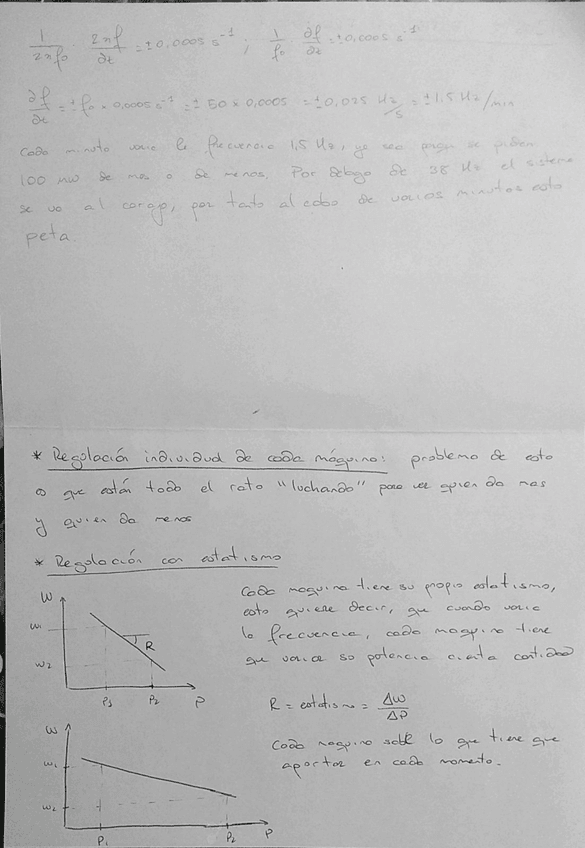 1/2πf₀ · 2πf/∂t = ±0,0005 s⁻¹ ; 1/f₀ · ∂f/∂t = ±0,0005 s⁻¹
∂f/∂t = ± f₀ × 0,0005 s⁻¹ = ± 50 × 0,0005 = ±0,025 Hz/s = ±1,5 Hz/min
Cada minuto varia la frecuencia 1,5 Hz, ya sea porque se piden
100 mW de mas o de menos. Por debajo de 38 Hz el sistema
se va al carajo, por tanto al cabo de varios minutos esto
peta.
* Regulación individual de cada máquina: problema de esto
o que están todo el rato "luchando" para ver quien da mas
y quien da menos
* Regulación con estatismo
W
W₁
W₂
R
P₁
P₂
P
Cada maquina tiene su propio estatismo,
esto quiere decir, que cuando varie
la frecuencia, cada maquina tiene
que variar su potencia cierta cantidad
R = estatismo = ΔW/ΔP
Cada maquina sabe lo que tiene que
aportar en cada momento.
W
W₁
W₂
P₁
P₂
P